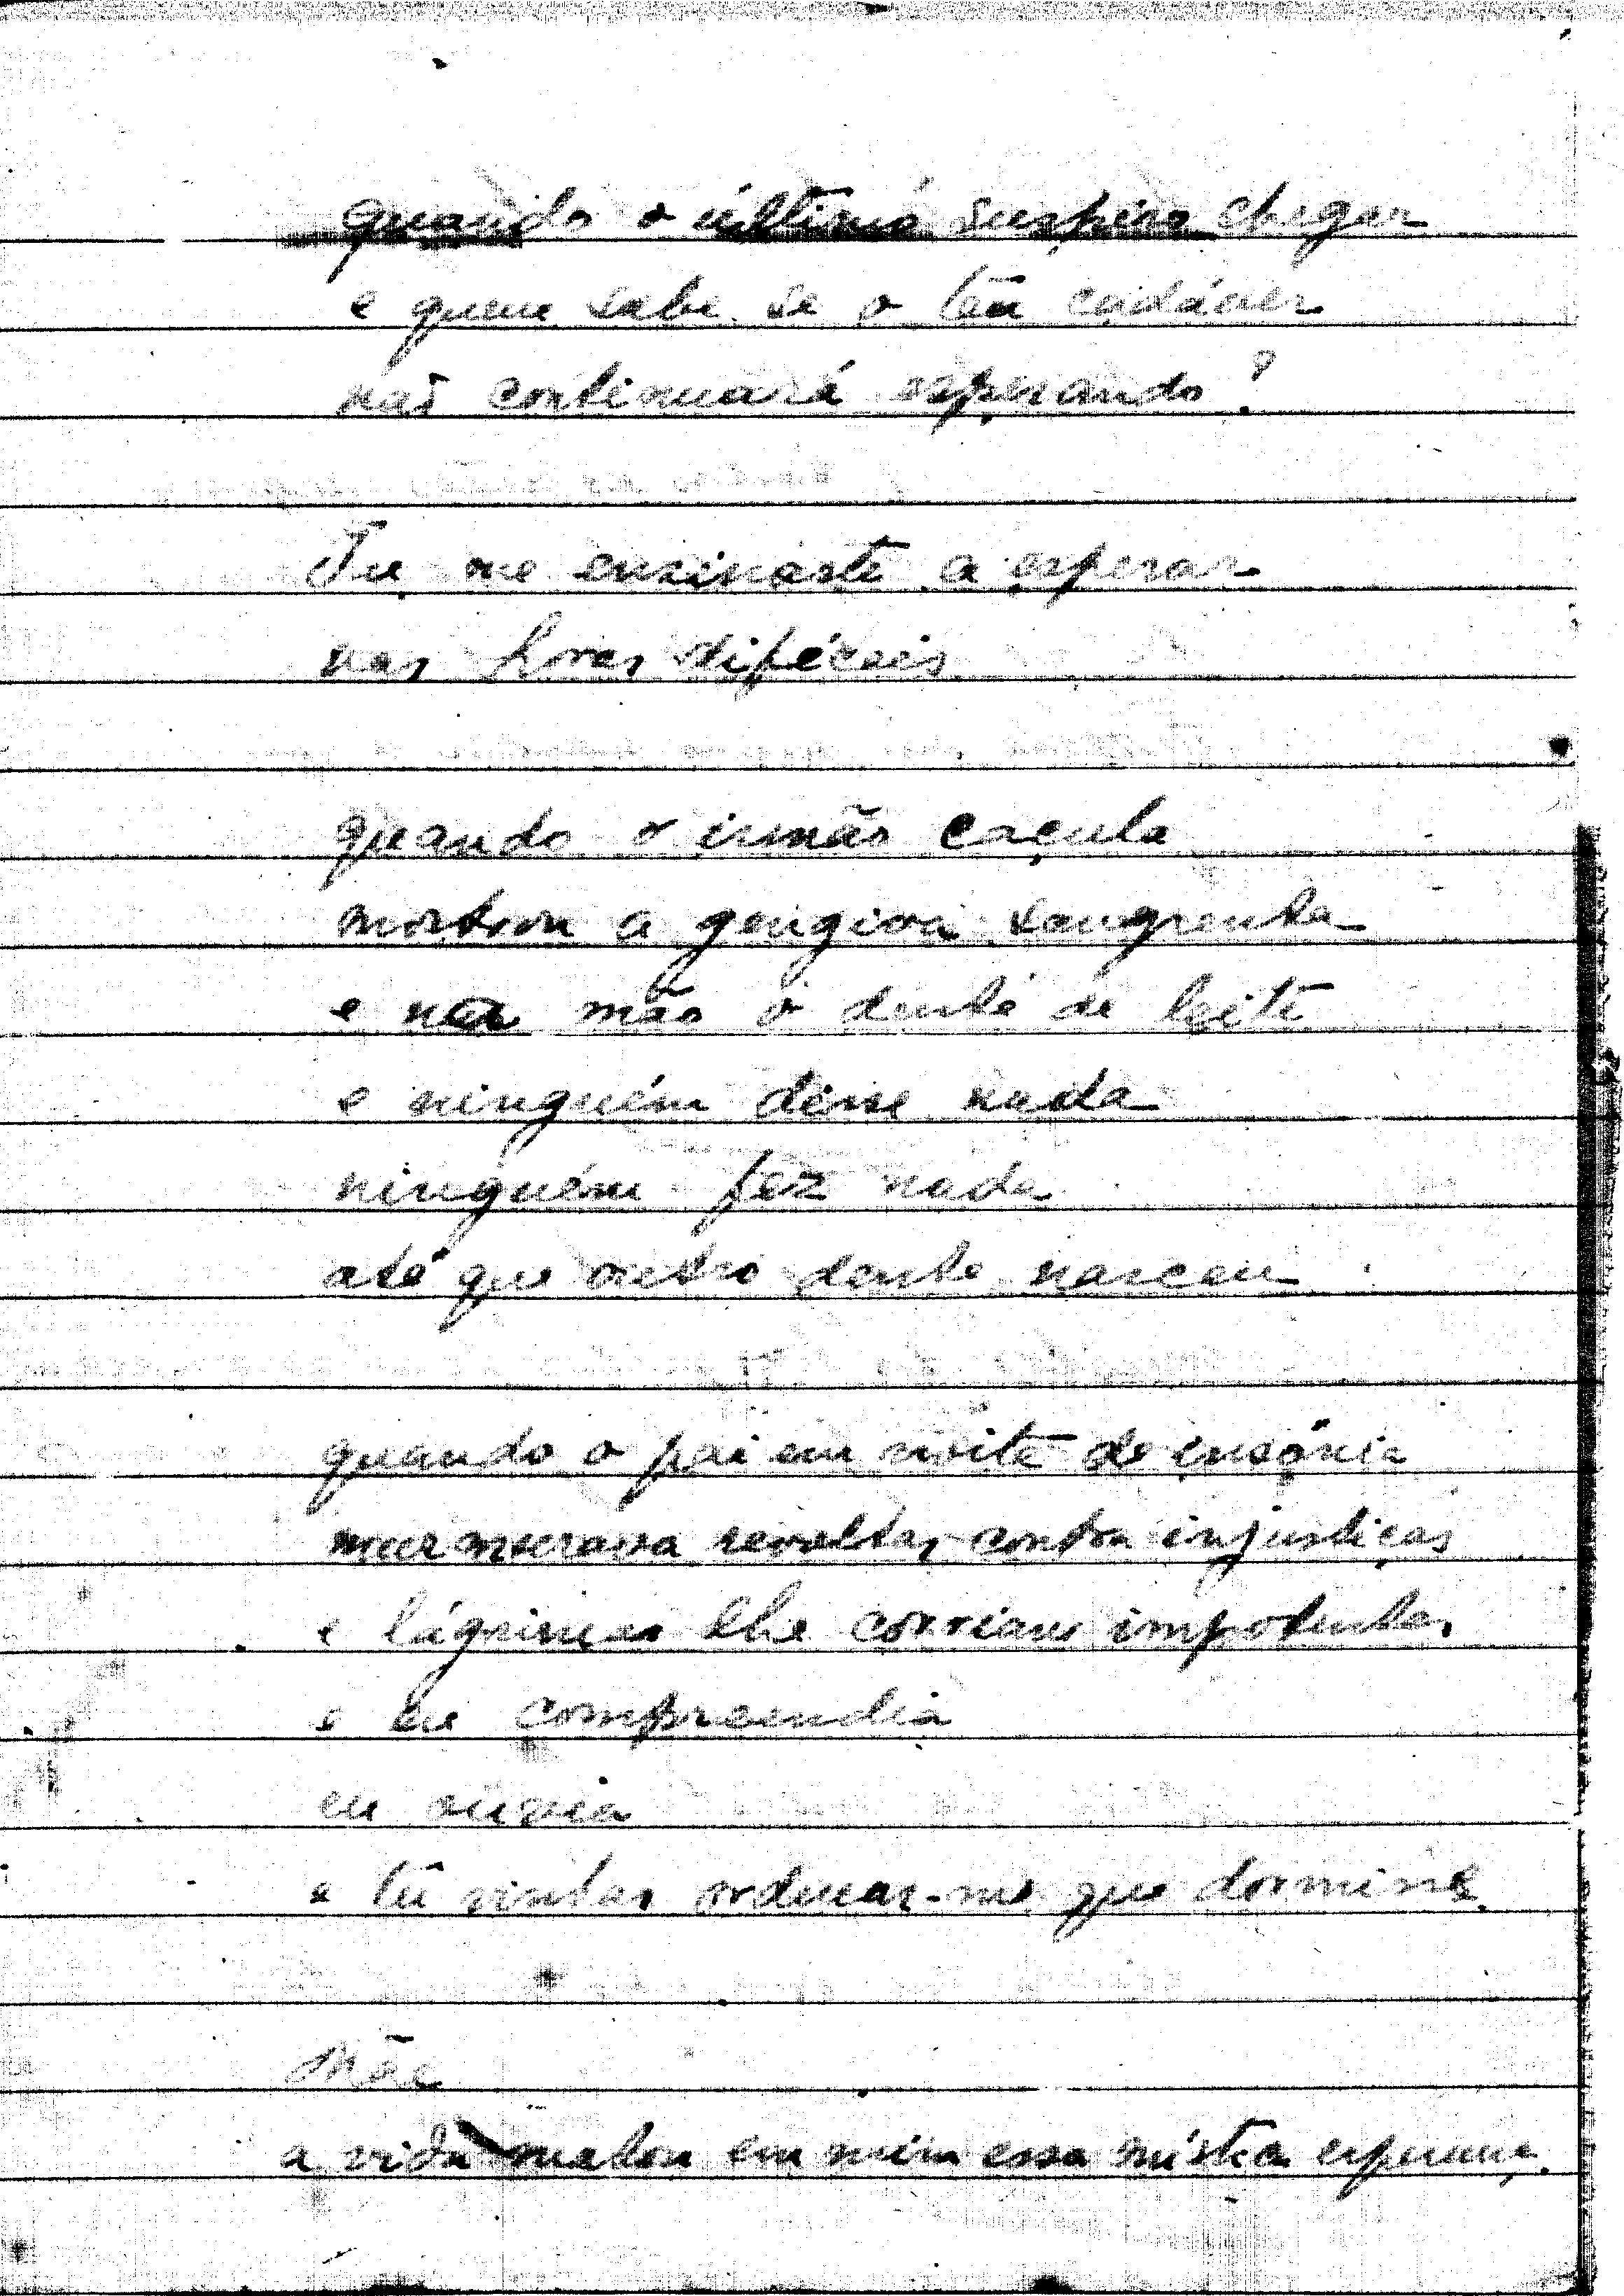 quando o último suspiro chegar
e quem sabe se o teu cadáver
não continuará esperando?
Tu me ensinaste a esperar
nas horas difíceis
quando o irmão caçula
mostrou a gengiva sangrenta
e na mão o dente de leite
e ninguém disse nada
ninguém fez nada
até que outro dente nasceu
quando o pai em noite de insónia
murmurava revoltas contra injustiças
e lágrimas lhe corriam impotentes
e eu compreendia
eu ouvia
e tu vinhas ordenar-me que dormisse.
Mãe
a vida matou em mim essa mística esperança.